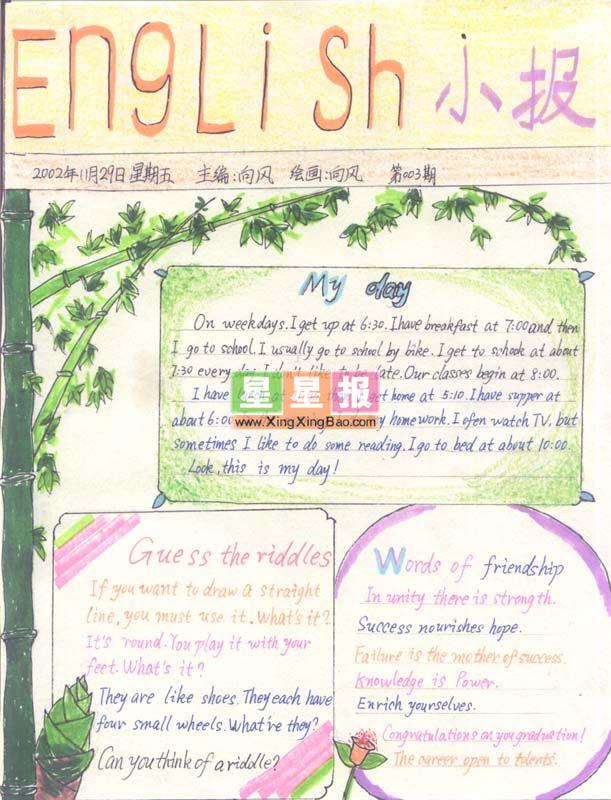 EngLiSh 小报
2002年11月29日星期五 主编:向风 绘画:向风 第003期
My day
On weekdays. I get up at 6:30. I have breakfast at 7:00 and then
I go to school. I usually go to school by bike. I get to schook at about
7:30 every day. I don't like to be late. Our classes begin at 8:00.
I have lunch at get home at 5:10. I have supper at
about 6:00 my homework. I ofen watch TV, but
sometimes I like to do some reading. I go to bed at about 10:00.
Look, this is my day!
星星报
www.XingXingBao.com
Guess the riddles
If you want to draw a straight
line, you must use it. What's it?
It's round. You play it with your
feet. What's it?
They are like shoes. They each have
four small wheels. What're they?
Can you think of a riddle?
Words of friendship
In unity there is strength.
Success nourishes hope.
Failure is the mother of success.
Knowledge is Power.
Enrich yourselves.
Congratulations on you graduation!
The career open to talents.